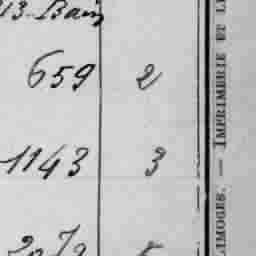 13 Bain
659 2
1143 3
LIMOGES. — IMPRIMERIE ET L